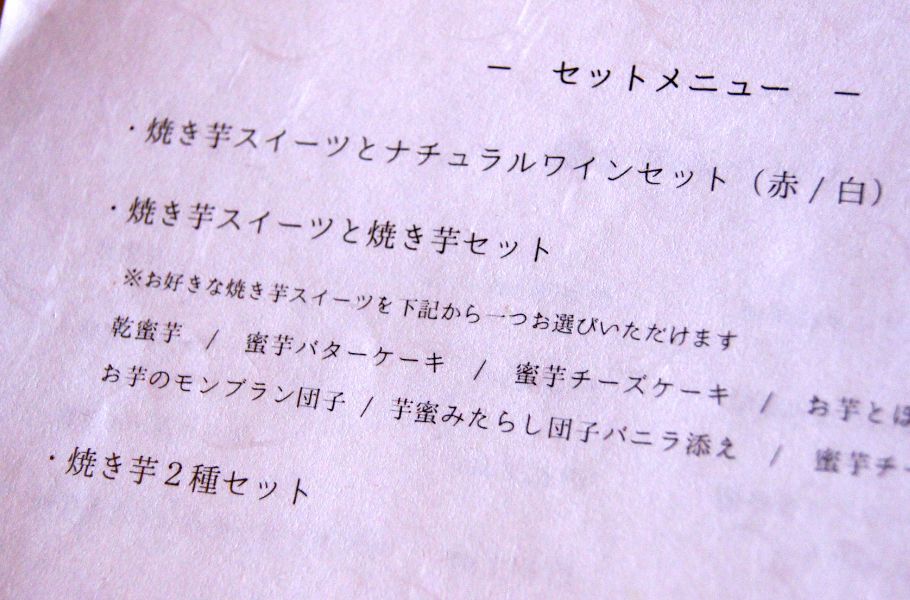 － セットメニュー －
・焼き芋スイーツとナチュラルワインセット（赤/白）
・焼き芋スイーツと焼き芋セット
※お好きな焼き芋スイーツを下記から一つお選びいただけます
乾蜜芋 / 蜜芋バターケーキ / 蜜芋チーズケーキ / お芋とほ
お芋のモンブラン団子 / 芋蜜みたらし団子バニラ添え / 蜜芋チー
・焼き芋２種セット